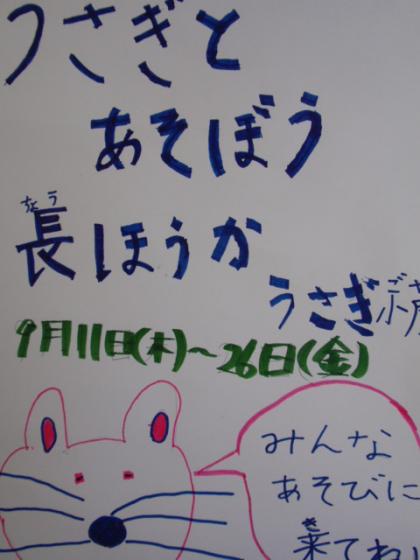 うさぎと
あそぼう
ちょう
長ほうか
ごや
うさぎ小屋
9月11日(木)~26日(金)
みんな
あそびに
き
来てね